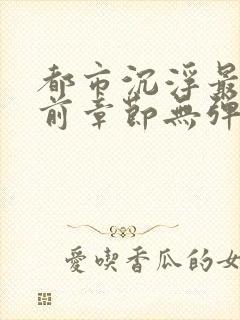 都市沉浮最
前章節無彈
愛喫香瓜的女